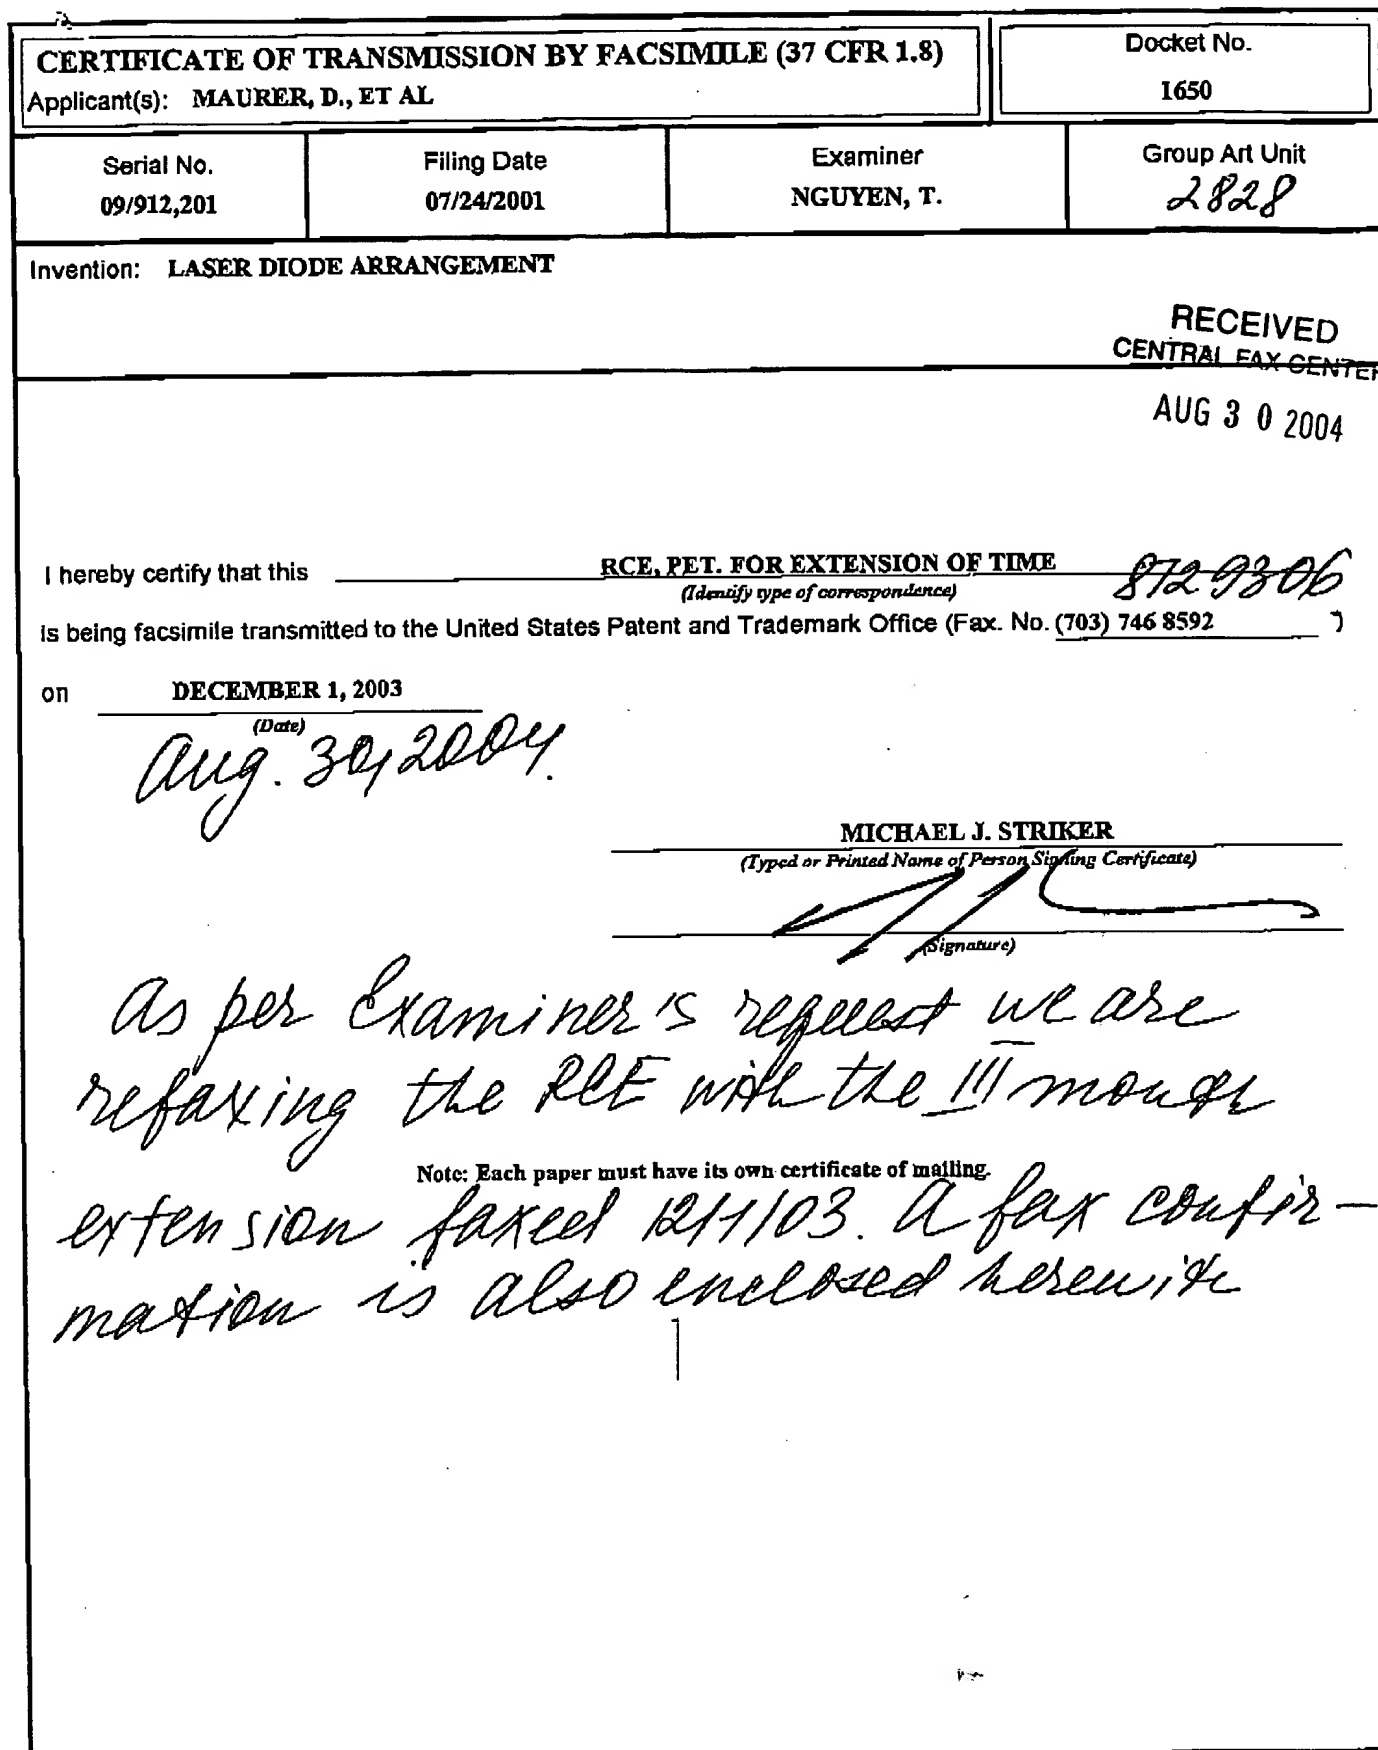 CERTIFICATE OF TRANSMISSION BY FACSIMILE (37 CFR 1.8)
Applicant(s): MAURER, D., ET AL
Docket No.
1650
Serial No.
09/912,201
Filing Date
07/24/2001
Examiner
NGUYEN, T.
Group Art Unit
2828
Invention: LASER DIODE ARRANGEMENT
RECEIVED
CENTRAL FAX CENTER
AUG 3 0 2004
I hereby certify that this RCE, PET. FOR EXTENSION OF TIME
(Identify type of correspondence)
8729306
is being facsimile transmitted to the United States Patent and Trademark Office (Fax. No. (703) 746 8592 )
on DECEMBER 1, 2003
(Date)
Aug. 30, 2004.
MICHAEL J. STRIKER
(Typed or Printed Name of Person Signing Certificate)
(Signature)
As per Examiner's request we are
refaxing the RCE with the III month
Note: Each paper must have its own certificate of mailing.
extension faxed 12/1/03. A fax confir-
mation is also enclosed herewith